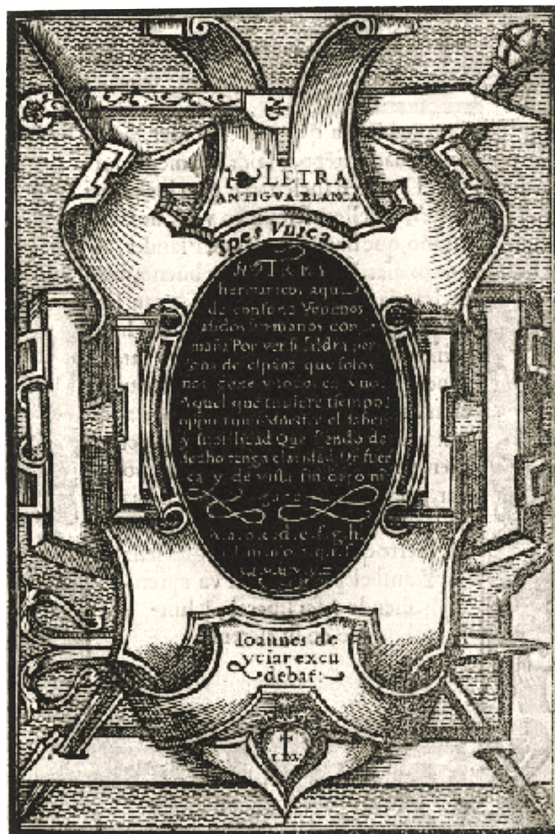 LETRA
ANTIGVA BLANCA
Spes Vnica
hermanicos aqui
de consuno Venimos
asidos hermanos con
maña Por ver si saldra per
sona de españa que solos
nos goze y todos en vno.
Aquel que tuuiere tiempo
opportuno muestre el saber
y subtilidad Que siendo de
hecho tenga claridad De fuer
ça y de vista sin
A. a. b. c. d. e. f. g. h.
Ioannes de
yciar excu
debat: